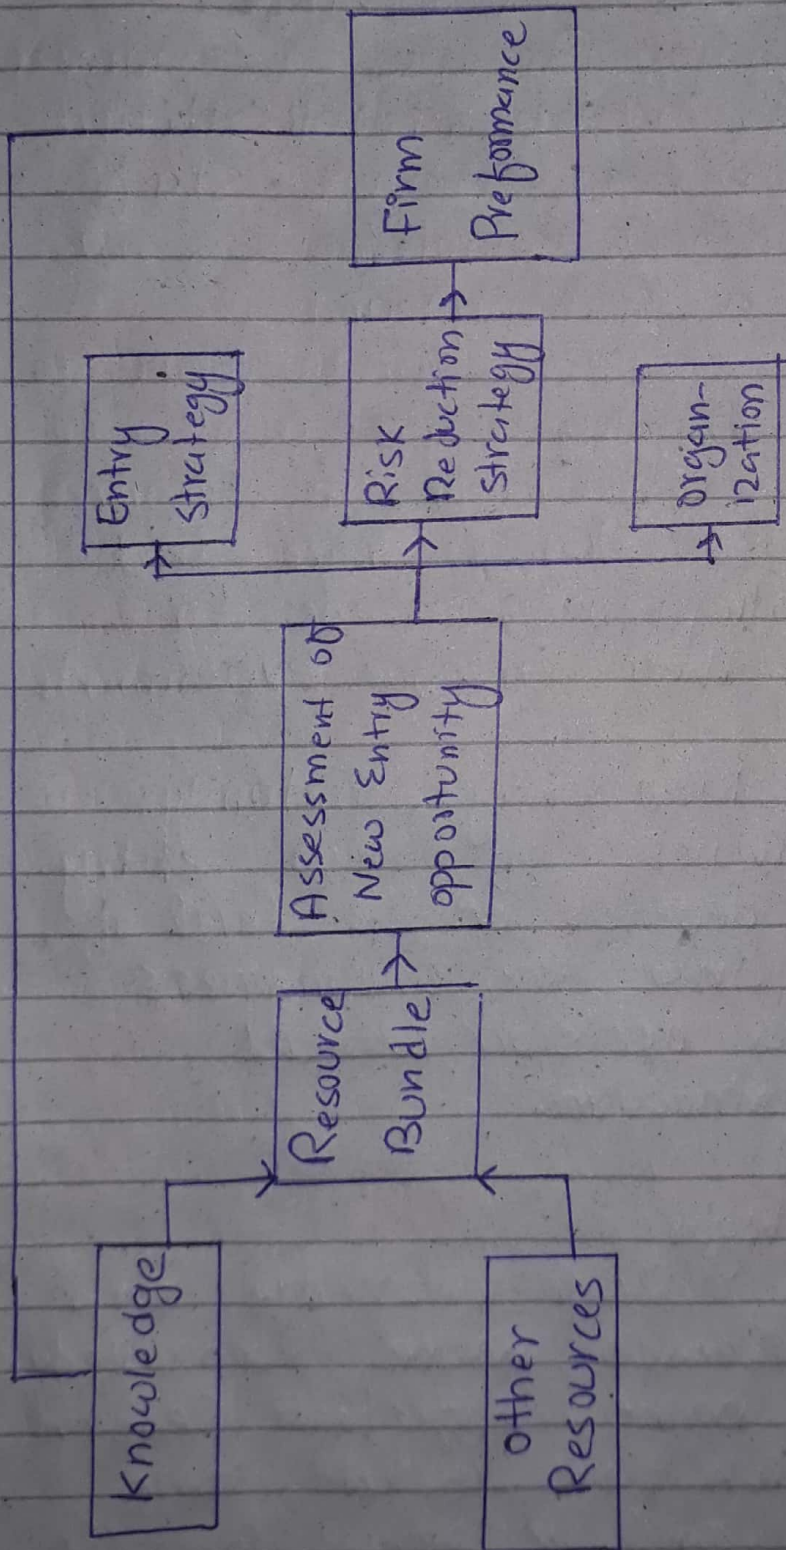 Knowledge
Other
Resources
Resource
Bundle
Assessment of
New Entry
opportunity
Entry
strategy
Risk
Reduction
strategy
organ-
ization
Firm
Preformance